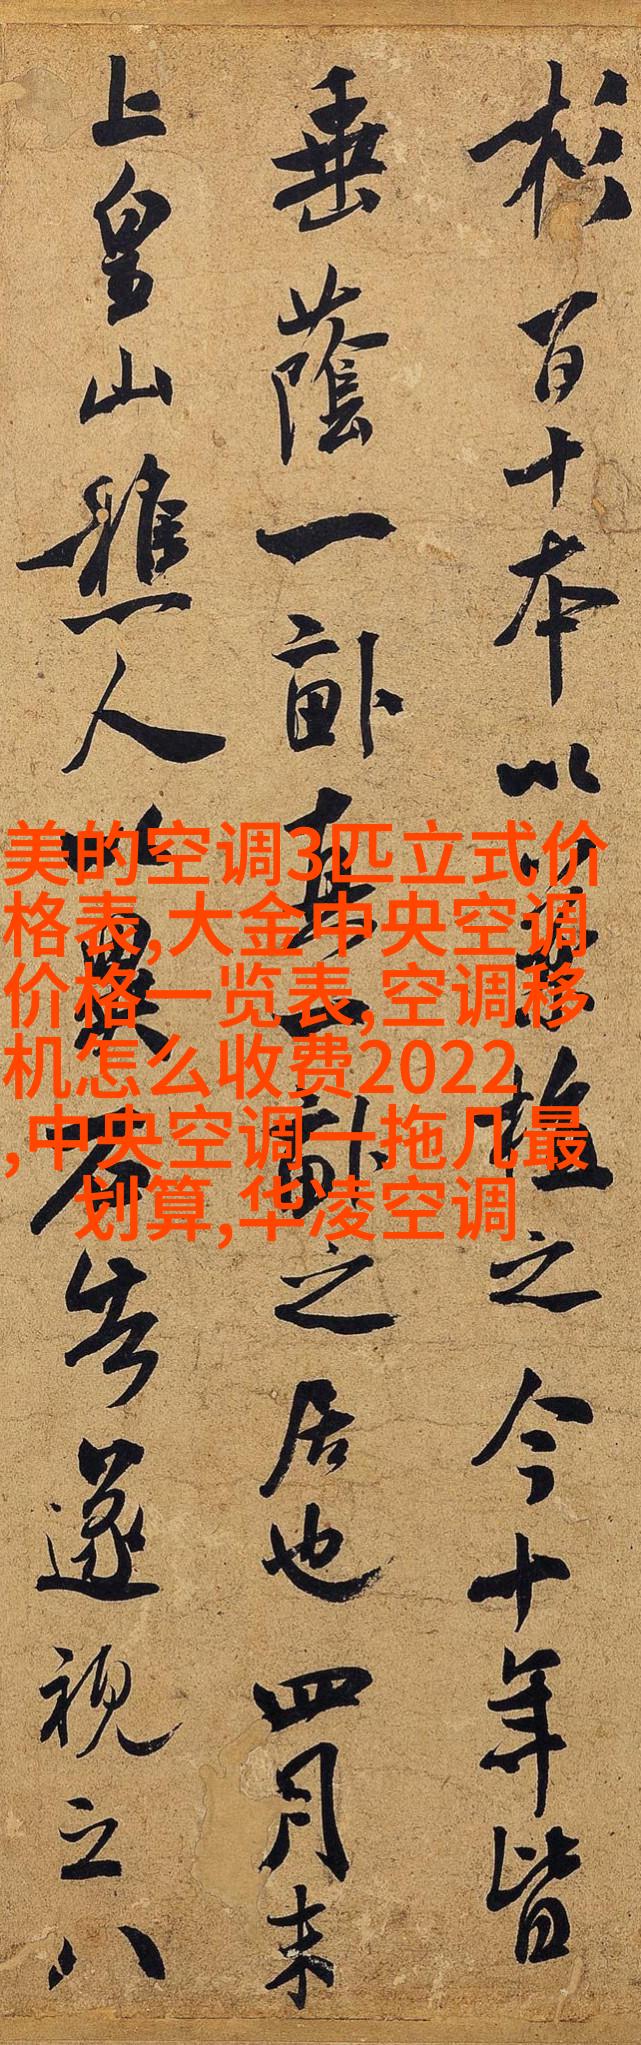 杉百十本以叢植之今十年皆
垂蔭一畝真一畝之居也四月末
上皇山樵人以異石告遂視之八
美的空调3匹立式价
格表,大金中央空调
价格一览表,空调移
机怎么收费2022
,中央空调一拖几最
划算,华凌空调